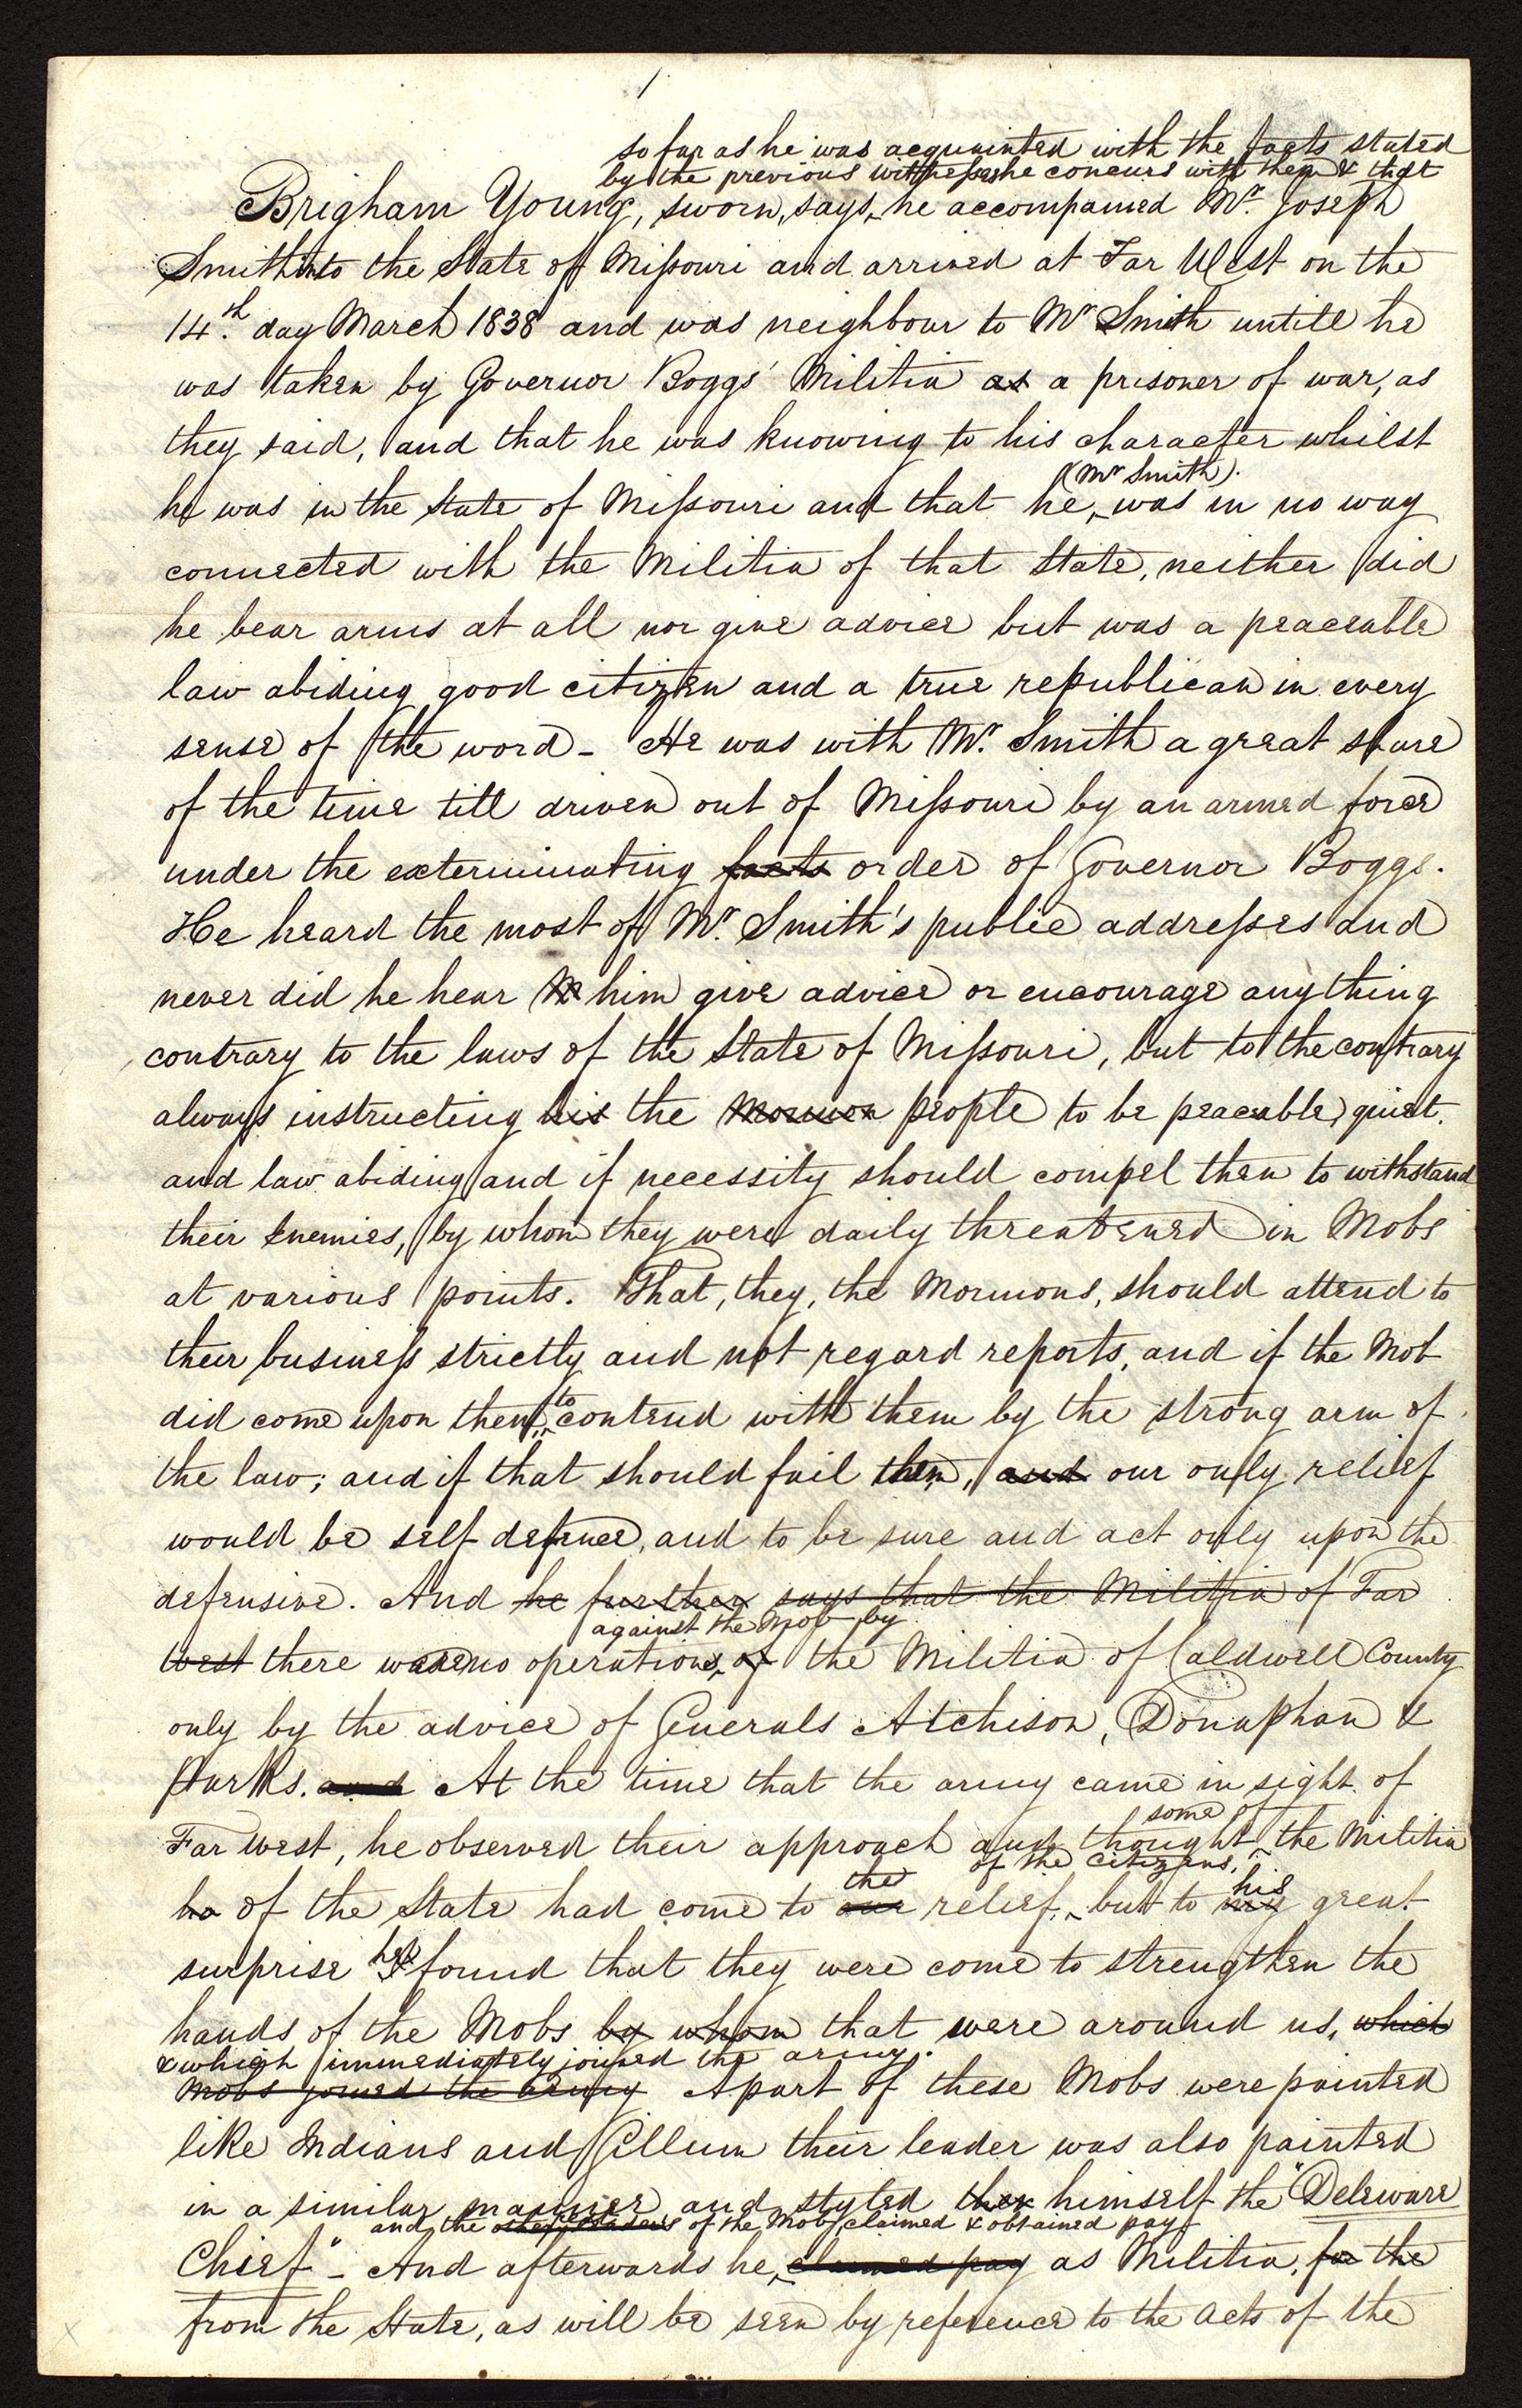 1
so far as he was acquainted with the facts stated
by the previous witnesses he concurs with them & that
Brigham Young, sworn, says, he accompanied Mr. Joseph
Smith into the State of Missouri and arrived at Far West on the
14th. day March 1838 and was neighbour to Mr Smith untill he
was taken by Governor Boggs' Militia as a prisoner of war, as
they said, and that he was knowing to his character whilst
(Mr Smith).
he was in the State of Missouri and that he, was in no way
connected with the Militia of that State, neither did
he bear arms at all nor give advice but was a peaceable
law abiding good citizen and a true republican in every
sense of the word - He was with Mr. Smith a great share
of the time till driven out of Missouri by an armed force
under the exterminating facts order of Governor Boggs.
He heard the most of Mr. Smith's public addresses and
never did he hear him give advice or encourage anything
contrary to the laws of the State of Missouri, but to the contrary
always instructing his the Mormon people to be peaceable, quiet.
and law abiding and if necessity should compel them to withstand
their Enemies, by whom they were daily threatened in Mobs
at various points. That, they, the Mormons, should attend to
their business strictly and not regard reports, and if the Mob
to
did come upon them, contend with them by the strong arm of
the law; and if that should fail them, and our only relief
would be self defence, and to be sure and act only upon the
defensive. And he further says that the Militia of Far
against the Mob by
West there were no operations, of the Militia of Caldwell County
only by the advice of Generals Atchison, Donaphan &
Parks. and At the time that the army came in sight of
some of
Far West, he observed their approach and thought the Militia
the of the citizens, his
ha of the State had come to our relief, but to my great
he
surprise I found that they were come to strengthen the
hands of the Mobs by whom that were around us, which
& which immediately joined the army.
Mobs joined the army A part of these Mobs were painted
like Indians and Gillum their leader was also painted
in a similar manner and styled himself the "Deleware
and the other leaders of the Mob claimed & obtained pay
Chief" - And afterwards he, claimed pay as Militia, for the
from the State, as will be seen by reference to the acts of the